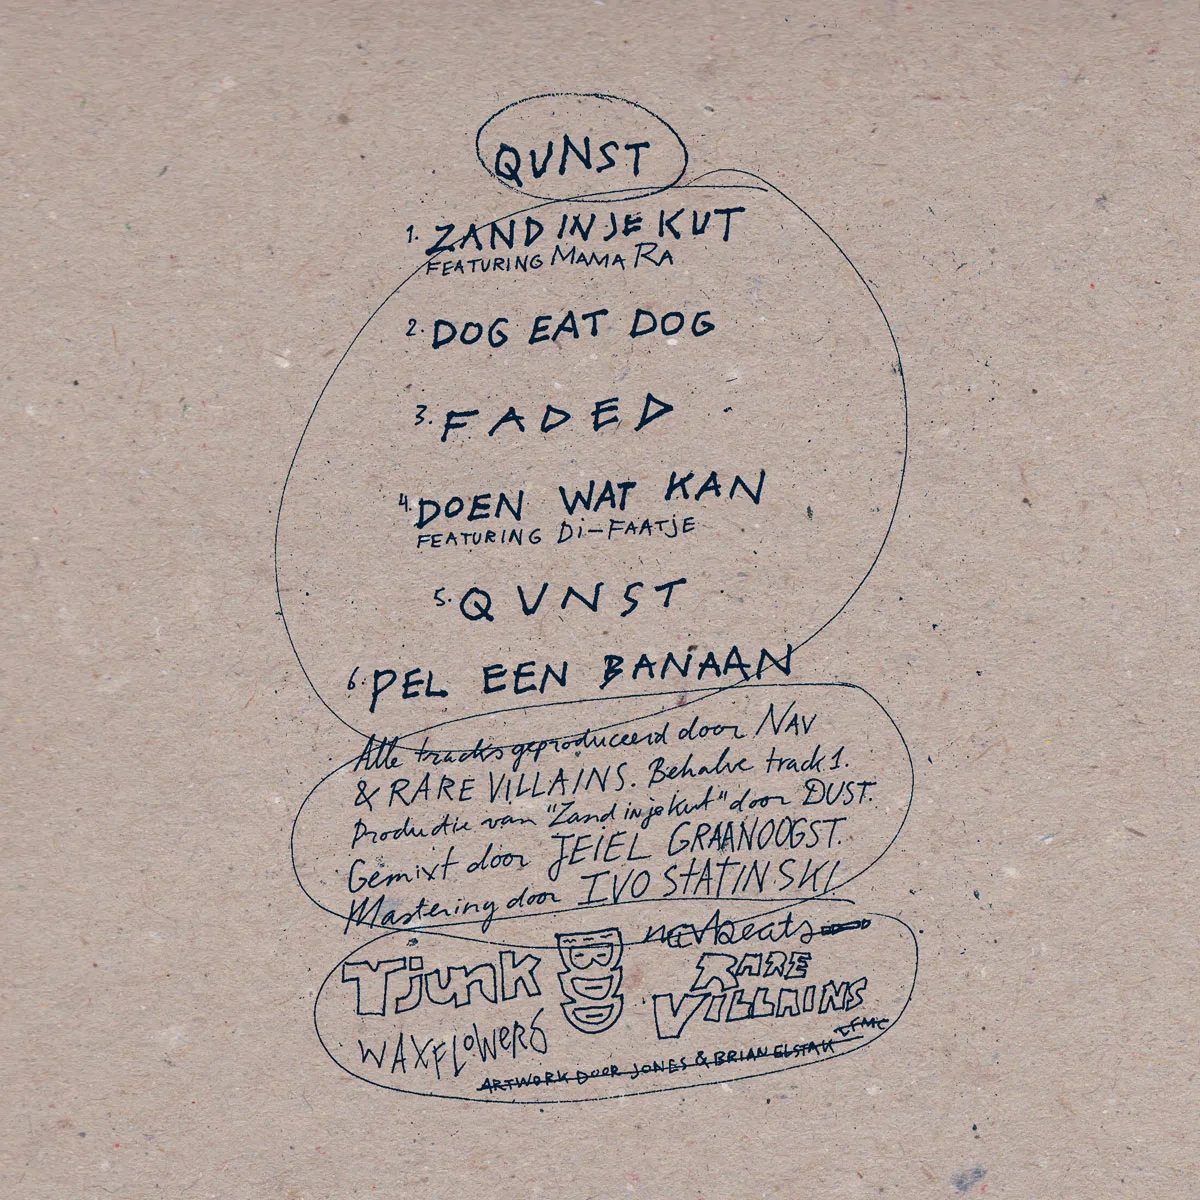 QVNST
1. ZAND IN JE KUT
FEATURING MAMA RA
2. DOG EAT DOG
3. FADED
4. DOEN WAT KAN
FEATURING Di-FAATjE
5. QVNST
6. PEL EEN BANAAN
Alle tracks geproduceerd door NAV
& RARE VILLAINS. Behalve track 1.
Productie van "Zand in je kut" door DUST.
Gemixt door JEIEL GRAANOOGST.
Mastering door IVO STATINSKI.
Tjunk
navbeats
RARE
VILLAINS
WAXFLOWERS
ARTWORK DOOR JONES & BRIAN ELSTAK